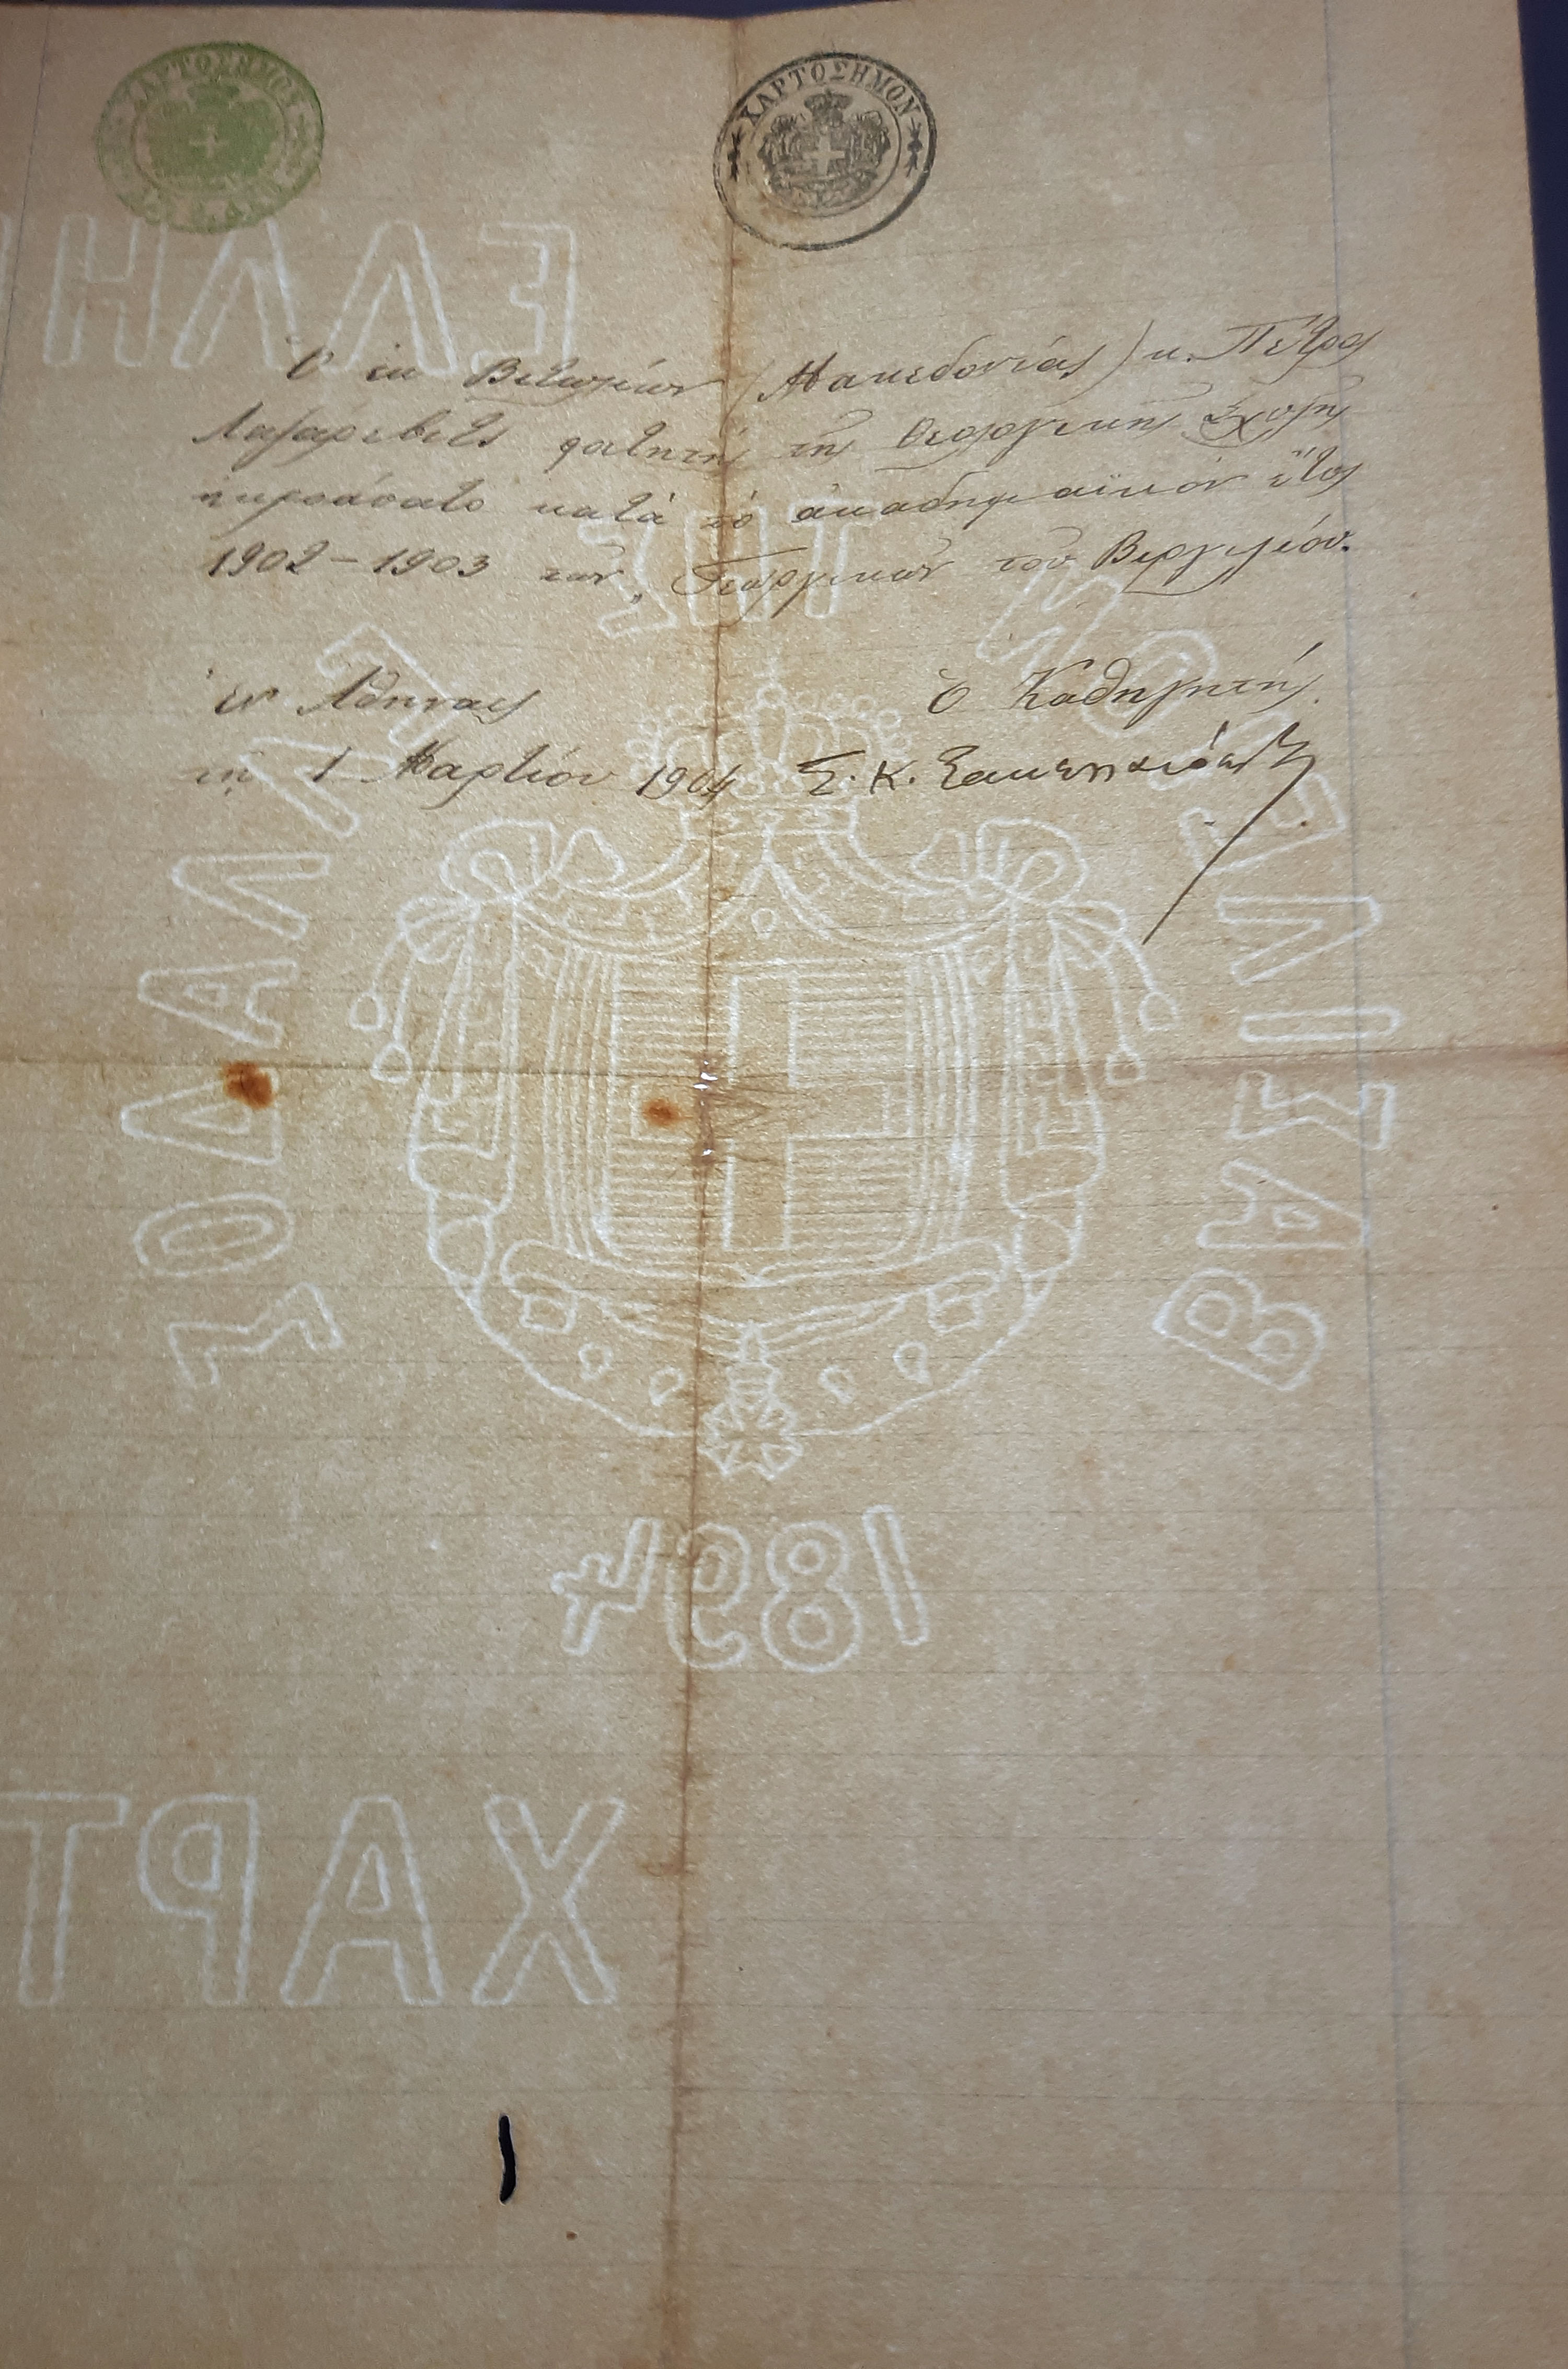 ΧΑΡΤΟΣΗΜΟΝ
ΧΑΡΤΟΣΗΜΟΝ
ΕΛΛΗ
Ὁ ἐκ Βιτωλίων (Μακεδονίας) κ. Πέτρος
Λαζάρεβιτς φοιτητὴς τῆς Θεολογικῆς Σχολῆς
ἠκροάσατο κατὰ τὸ ἀκαδημαϊκὸν ἔτος
1902-1903 τῶν „Γεωργικῶν τοῦ Βιργιλίου.
ἐν Ἀθήναις
τῇ 1 Μαρτίου 1904
Ὁ Καθηγητής.
Σ. Κ. Σακελλαρόπουλος
ΒΑΣΙΛΕΙΟΝ ΤΗΣ ΕΛΛΑΔΟΣ
1894
ΧΑΡΤ